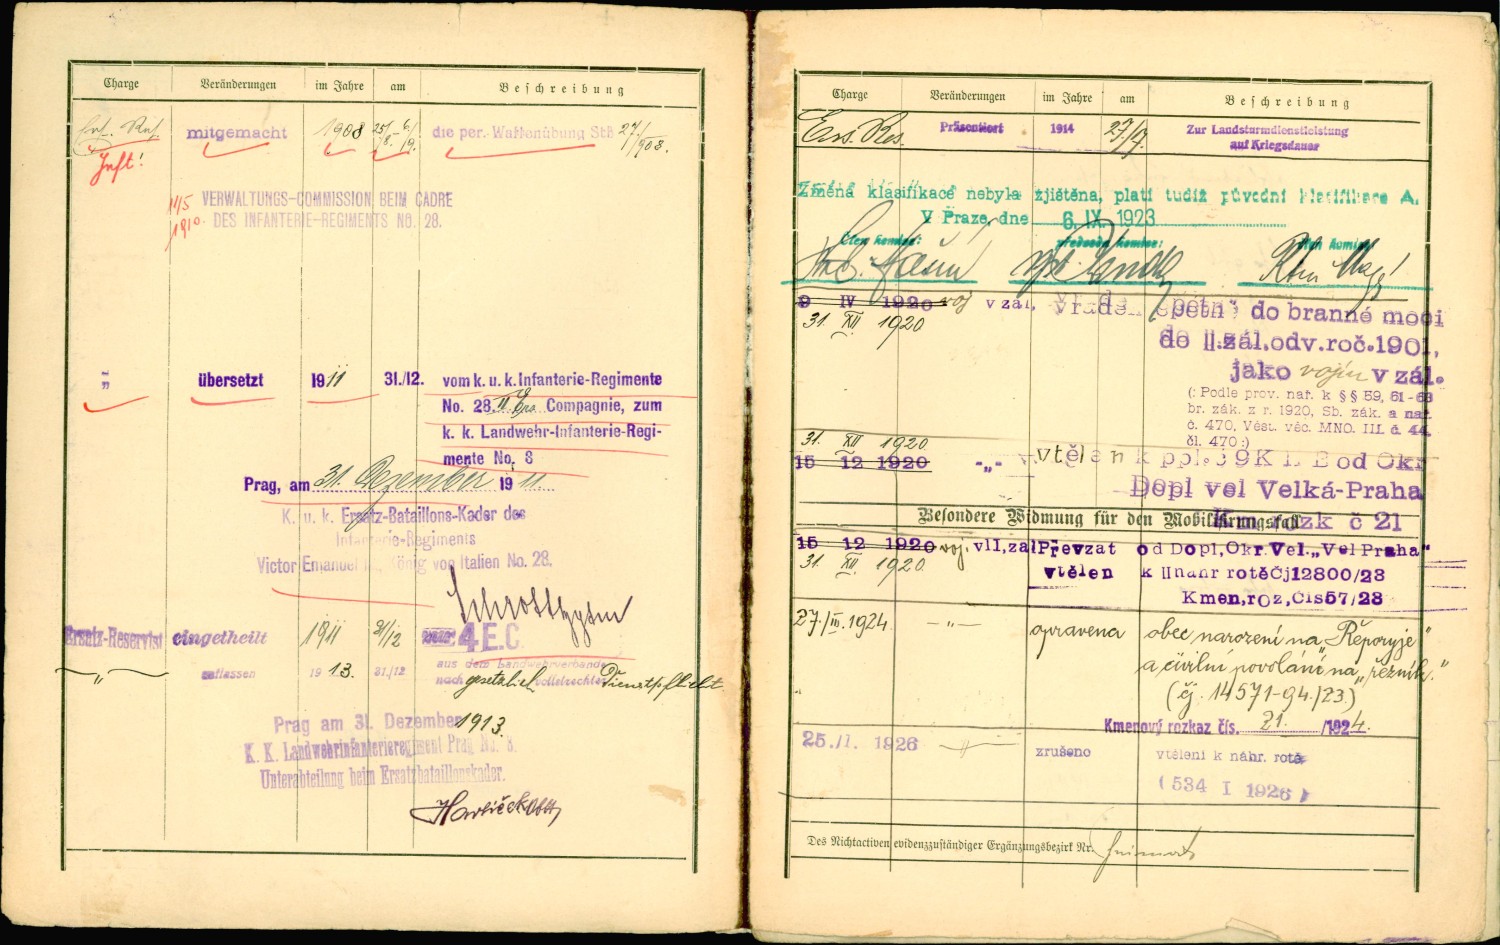 Charge Veränderungen im Jahre am Beschreibung
mitgemacht 1908 25/8.–6/9. die per. Waffenübung Stb 27/908.
Inft!
14/5 1910.
VERWALTUNGS-COMMISSION BEIM CADRE
DES INFANTERIE-REGIMENTS NO. 28.
„ übersetzt 1911 31./12. vom k. u. k. Infanterie-Regimente
No. 28. 11 Compagnie, zum
k. k. Landwehr-Infanterie-Regi-
mente No. 8
Prag, am 31. Dezember 1911
K. u. k. Ersatz-Bataillons-Kader des
Infanterie-Regiments
Victor Emanuel III., König von Italien No. 28.
Ersatz-Reservist eingetheilt 1911 31/12 4 E.C.
„ entlassen 1913. 31./12 aus dem Landwehrverbande
nach gesetzlich vollstreckter Dienstpflicht
Prag am 31. Dezember 1913.
K. K. Landwehrinfanterieregiment Prag No. 8.
Unterabteilung beim Ersatzbataillonskader.
Havlíček Oblt
Charge Veränderungen im Jahre am Beschreibung
Ers. Res. Präsentiert 1914 27/7. Zur Landsturmdienstleistung
auf Kriegsdauer
Změna klasifikace nebyla zjištěna, platí tudíž původní klasifikace A.
V Praze, dne 6. IX. 1923
Člen komise: předseda komise: člen komise:
9 IV 1920 voj v zál, vřaděn zpětně do branné moci
31. XII 1920
do II.zál.odv.roč.1901,
jako vojín v zál.
(: Podle prov. nař. k §§ 59, 61-63
br. zák. z r. 1920, Sb. zák. a nař.
č. 470, Věst. věc. MNO. III. č. 44.
čl. 470 :)
31. XII 1920
15 12 1920 -„- vtělen k ppl. 39 K L B od Okr
Dopl vel Velká-Praha
Km rozk č 21
Besondere Widmung für den Mobilisierungsfall
15 12 1920 voj. vII,zál Převzat od Dopl,Okr.Vel.„Vel Praha“
31. XII. 1920 vtělen k IInáhr rotě Čj12800/23
Kmen,roz,Čís57/23
27./III. 1924. -„- opravena obec narození na „Řeporyje“
a civilní povolání na „řezník.“
(čj. 14571-94./23.)
Kmenový rozkaz čís. 21. /1924.
25./I. 1926 -„- zrušeno vtělení k náhr. rotě
(534 I 1926)
Des Nichtaktiven evidenzzuständiger Ergänzungsbezirk Nr.